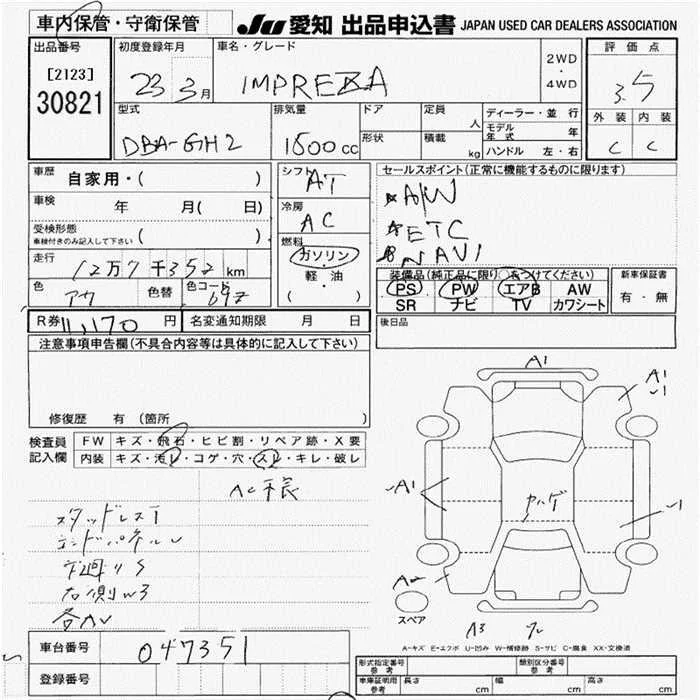 車内保管・守衛保管
JU 愛知 出品申込書 JAPAN USED CAR DEALERS ASSOCIATION
出品番号
[2123]
30821
初度登録年月
23 3月
車名・グレード
IMPREZA
2WD
・
4WD
評価点
3.5
外装 内装
C C
型式
DBA-GH2
排気量
1500cc
ドア
形状
定員
人
積載
kg
ディーラー・並行
モデル年式 年
ハンドル 左・右
車歴
自家用・( )
車検
年 月( 日)
受検形態
車検付きのみ記入して下さい ( )
走行
12万7千352km
色
アオ
色替
色コード
69Z
シフト
AT
冷房
AC
燃料
ガソリン
・
軽・油
( )
セールスポイント(正常に機能するものに限ります)
A/W
ETC
NAVI
装備品(純正品に限り○をつけてください)
PS PW エアB AW
SR ナビ TV カワシート
新車保証書
有・無
後日品
R券 11,170円
名変通知期限 月 日
注意事項申告欄(不具合内容等は具体的に記入して下さい)
修復歴 有(箇所 )
検査員
記入欄
FW キズ・飛石・ヒビ割・リペア跡・X要
内装 キズ・汚レ・コゲ・穴・スレ・キレ・破レ
スタッドレスT
エンドパネルU
下廻りS
右側W3
各AU
A1
A1
A1
スペア
A-キズ E-エクボ U-凹み W-補修跡 S-サビ C-腐食 XX-交換済
車台番号
047351
登録番号
形式指定番号
参考
類別区分番号
参考
車庫証明用
参考
長さ cm
幅 cm
高さ cm